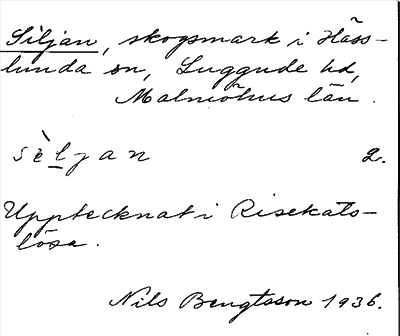 Siljan, skogsmark i Häss-
lunda sn, Luggude hd,
Malmöhus län.
sèljan 2.
Upptecknat i Risekats-
lösa.
Nils Bengtsson 1936.